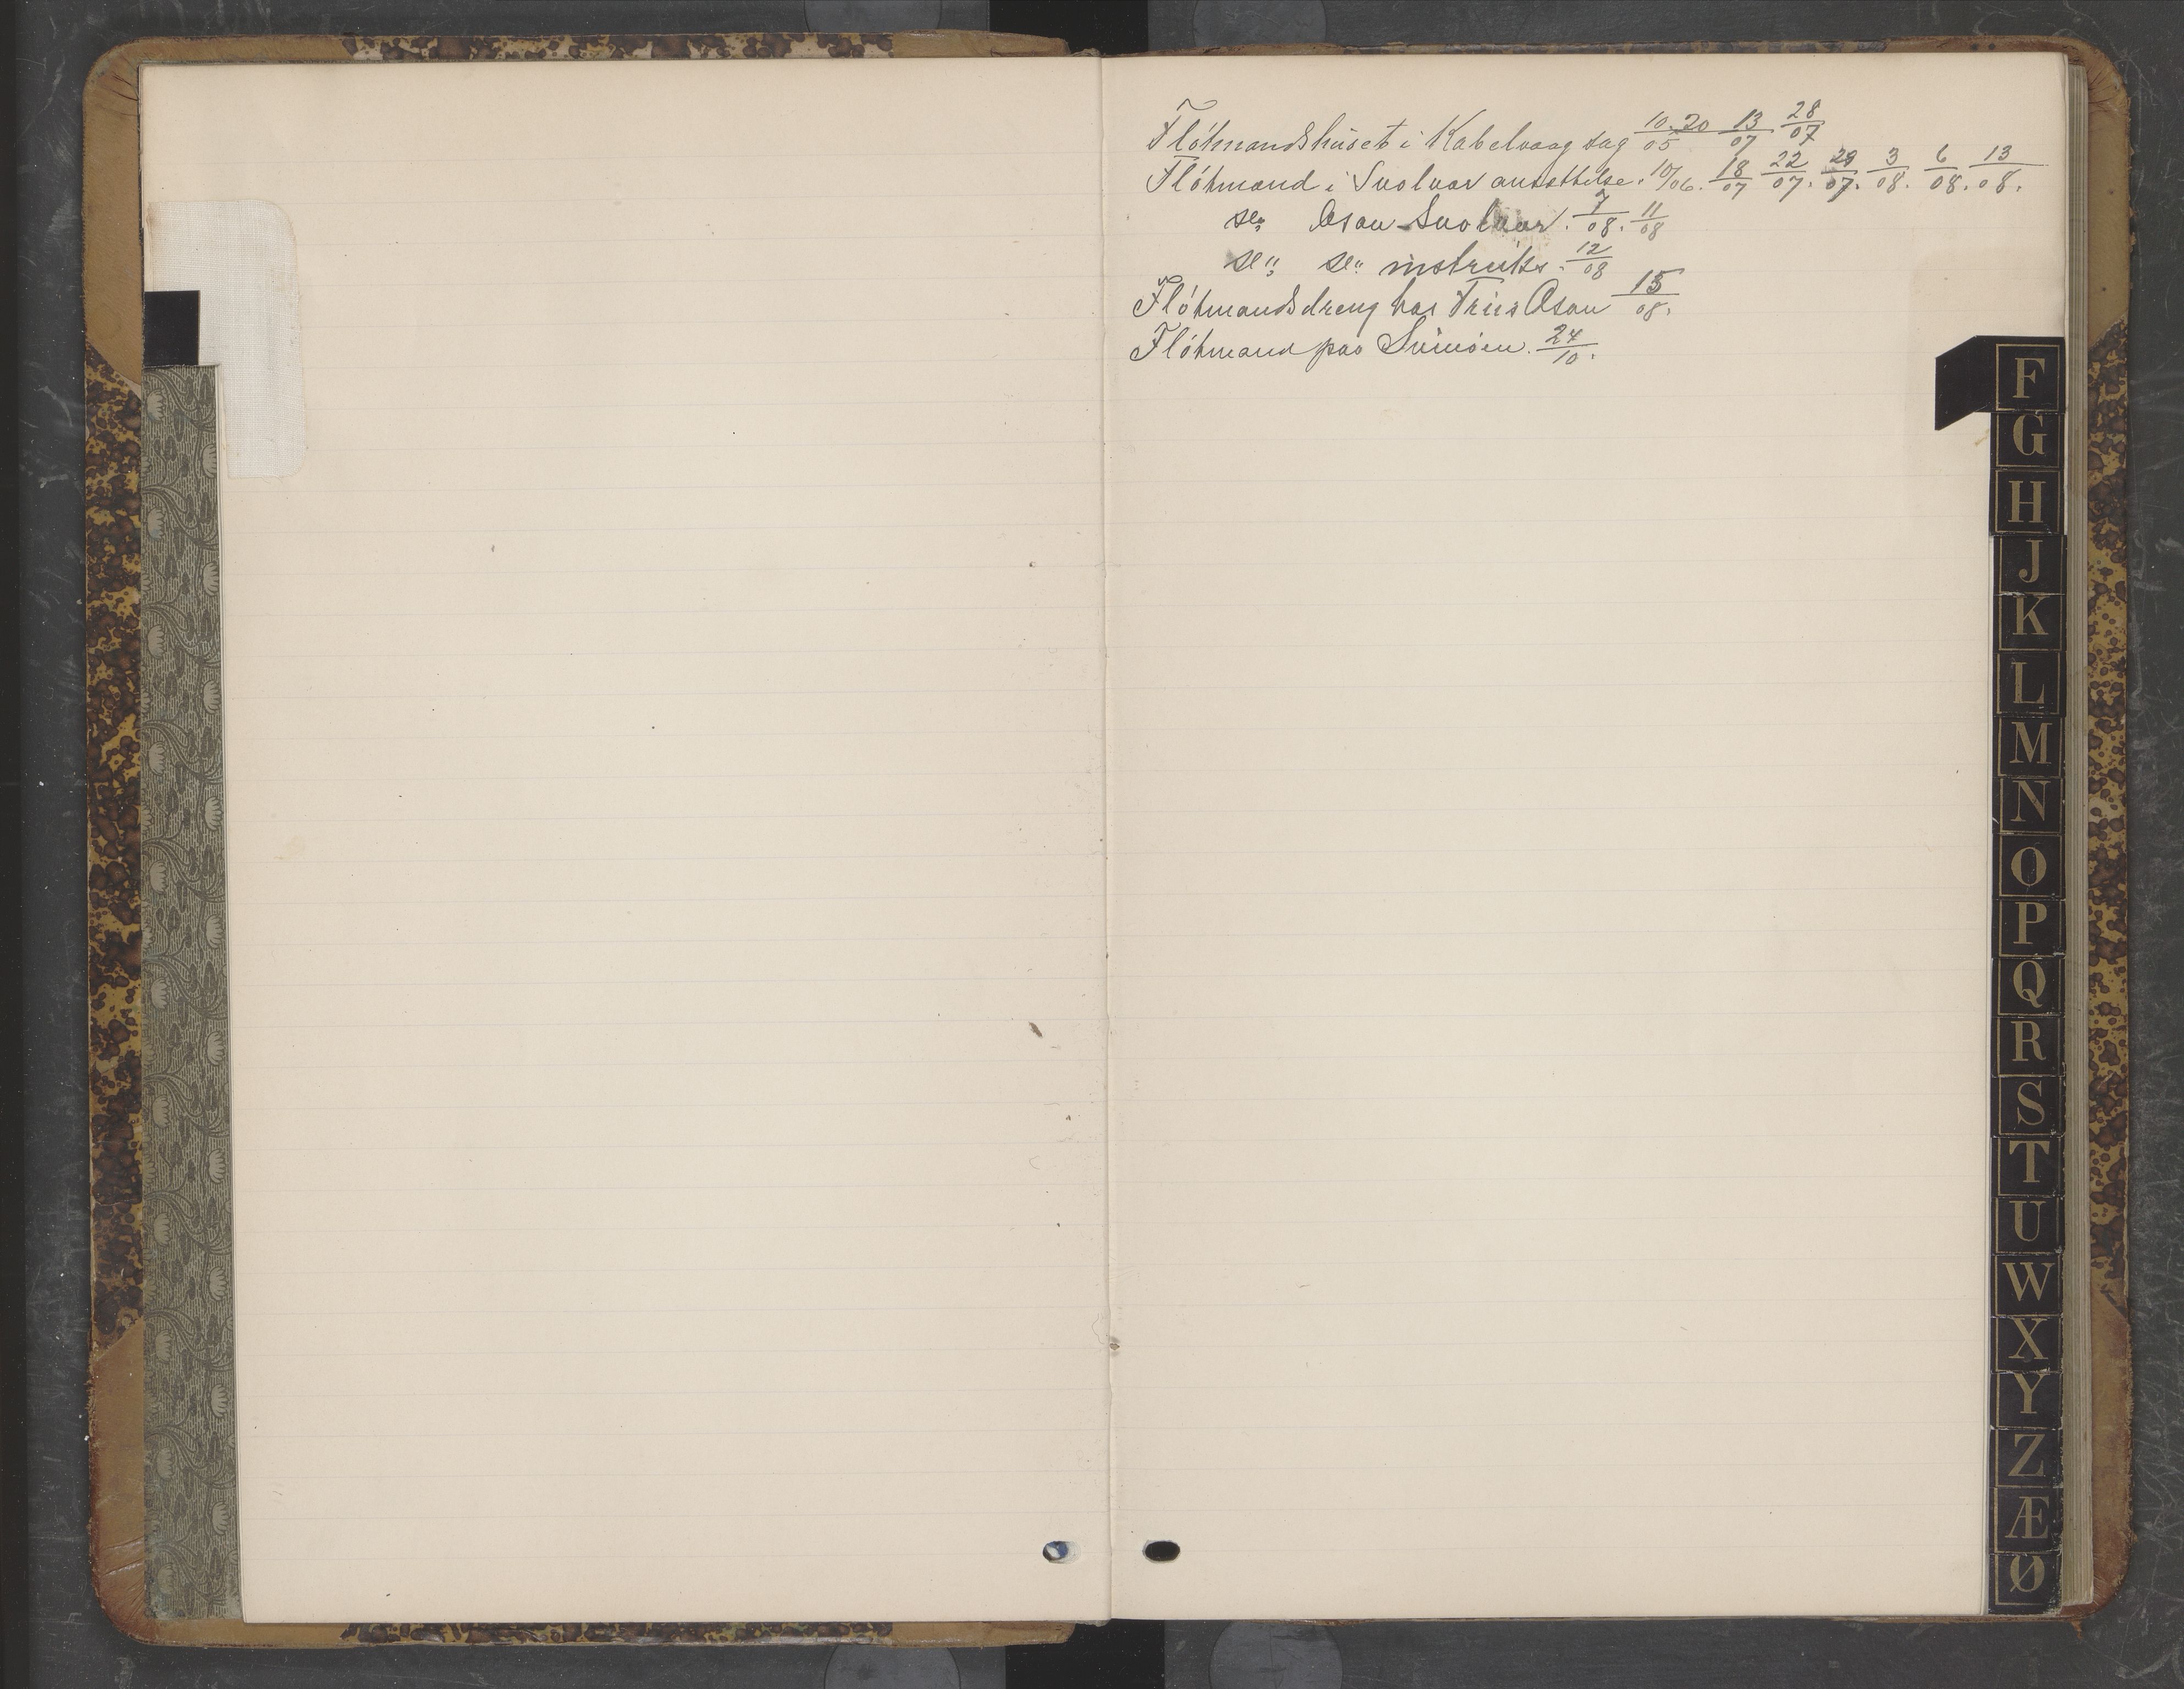 Fløtmandshuset i Kabelvaag sag 10.20/05 13/07 28/07
Fløtmand i Svolvær ansettelse. 10/06. 18/07 22/07. 29/07. 3/08. 6/08. 13/08.
Se" Osan Svolvær. 7/08. 11/08
Se" Se" instruks. 12/08
Fløtmandsdreng hos Friis Osan 15/08.
Fløtmand paa Svinøen. 24/10.
F
G
H
J
K
L
M
N
O
P
Q
R
S
T
U
W
X
Y
Z
Æ
Ø